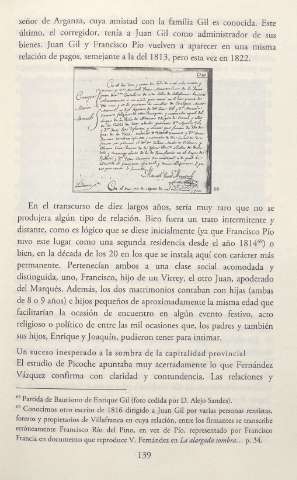 señor de Arganza, cuya amistad con la familia Gil es conocida. Este
último, el corregidor, tenía a Juan Gil como administrador de sus
bienes. Juan Gil y Francisco Pío vuelven a aparecer en una misma
relación de pagos, semejante a la del 1813, pero esta vez en 1822.
En el transcurso de diez largos años, sería muy raro que no se
produjera algún tipo de relación. Bien fuera un trato intermitente y
distante, como es lógico que se diese inicialmente (ya que Francisco Pío
tuvo este lugar como una segunda residencia desde el año 1814⁶⁹) o
bien, en la década de los 20 en los que se instala aquí con carácter más
permanente. Pertenecían ambos a una clase social acomodada y
distinguida, uno, Francisco, hijo de un Virrey, el otro Juan, apoderado
del Marqués. Además, los dos matrimonios contaban con hijas (ambas
de 8 o 9 años) e hijos pequeños de aproximadamente la misma edad que
facilitarían la ocasión de encuentro en algún evento festivo, acto
religioso o político de entre las mil ocasiones que, los padres y también
sus hijos, Enrique y Joaquín, pudieron tener para intimar.
Un suceso inesperado a la sombra de la capitalidad provincial
El estudio de Picoche apuntaba muy acertadamente lo que Fernández
Vázquez confirma con claridad y contundencia. Las relaciones y
Partida de Bautismo de Enrique Gil (foto cedida por D. Alejo Sandes).
Conocimos otro escrito de 1816 dirigido a Juan Gil por varias personas rentistas,
foreros y propietarios de Villafranca en cuya relación, entre los firmantes se transcribe
erróneamente Francisco Río del Pino, en vez de Pío, representado por Francisco
Francia en documento que reproduce V. Fernández en La alargada sombra... p. 34.
139